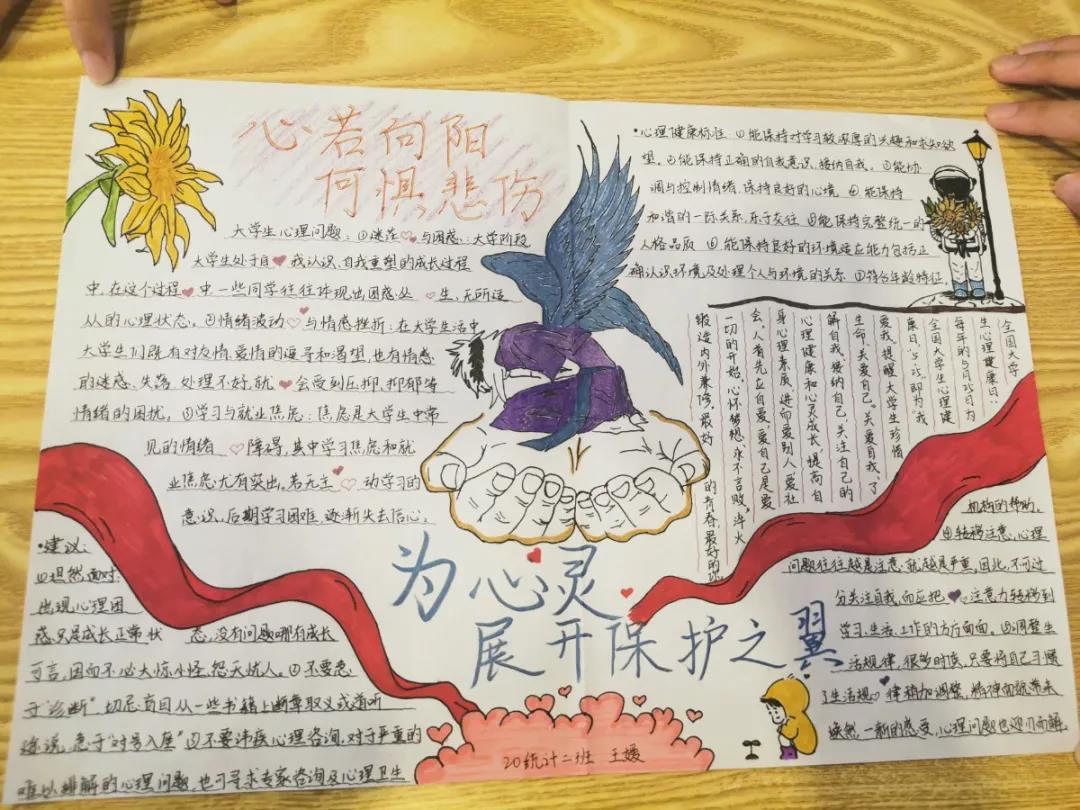 心若向阳
何惧悲伤
大学生心理问题：①迷茫与困惑：大学阶段
大学生处于自我认识、自我重塑的成长过程
中，在这个过程中一些同学往往体现出困惑丛生、无所适
从的心理状态。②情绪波动与情感挫折：在大学生活中
大学生们既有对友情、爱情的追寻和渴望，也有情感
的迷惑、失落，处理不好，就会受到压抑，抑郁等
情绪的困扰，③学习与就业焦虑：焦虑是大学生中常
见的情绪障碍，其中学习焦虑和就
业焦虑尤有突出。若无主动学习的
意识，后期学习困难，逐渐失去信心。
·心理健康标准：①能保持对学习较浓厚的兴趣和求知欲
望。②能保持正确的自我意识，接纳自我。③能协
调与控制情绪，保持良好的心境。④能保持
和谐的人际关系，乐于交往 ⑤能保持完整统一的
人格品质 ⑥能保持良好的环境适应能力包括正
确认识环境及处理个人与环境的关系 ⑦符合年龄特征
全国大学
生心理健康日：
每年的5月25日为
全国大学生心理健
康日，“5·25”即为“我
爱我”，提醒大学生“珍惜
生命、关爱自己”。关爱自我，了
解自我，接纳自己，关注自己的
心理健康和心灵成长，提高自
身心理素质，进而爱别人，爱社
会。人首先应自爱，爱自己是爱
一切的开始。心怀梦想，永不言败，淬火
锻造内外兼修，最好的青春，最好的
为心灵
展开保护之翼
·建议：
①坦然面对：
出现心理困
惑只是成长正常状态，没有问题哪有成长
可言，因而不必大惊小怪，怨天忧人。②不要急
于“诊断”，切忌盲目从一些书籍上断章取义或道听
途说，急于“对号入座”③不要讳疾心理咨询，对于严重的
难以排解的心理问题，也可寻求专家咨询及心理卫生
机构的帮助。
④转移注意，心理
问题往往越是注意，就越是严重，因此，不可过
分关注自我，而应把注意力转移到
学习、生活、工作的方方面面。⑤调整生
活规律，很多时候，只要将自己习惯
了生活规律稍加调整，精神面貌带来
焕然一新的感受，心理问题也迎刃而解。
20统计二班 王媛